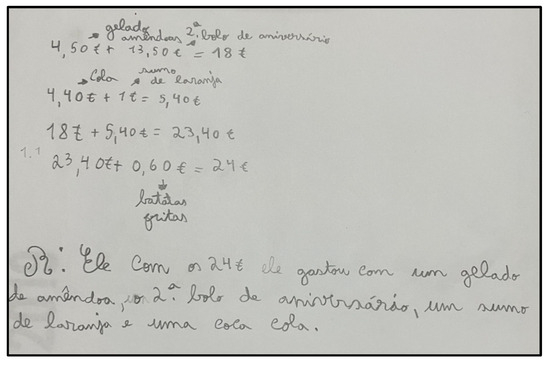 gelado
amêndoas 2.ª bolo de aniversário
4,50€ + 13,50€ = 18€
cola sumo de laranja
4,40€ + 1€ = 5,40€
18€ + 5,40€ = 23,40€
1.1
23,40€ + 0,60€ = 24€
batatas
fritas
R: Ele com os 24€ ele gastou com um gelado
de amêndoa, o 2.ª bolo de aniversário, um sumo
de laranja e uma coca cola.